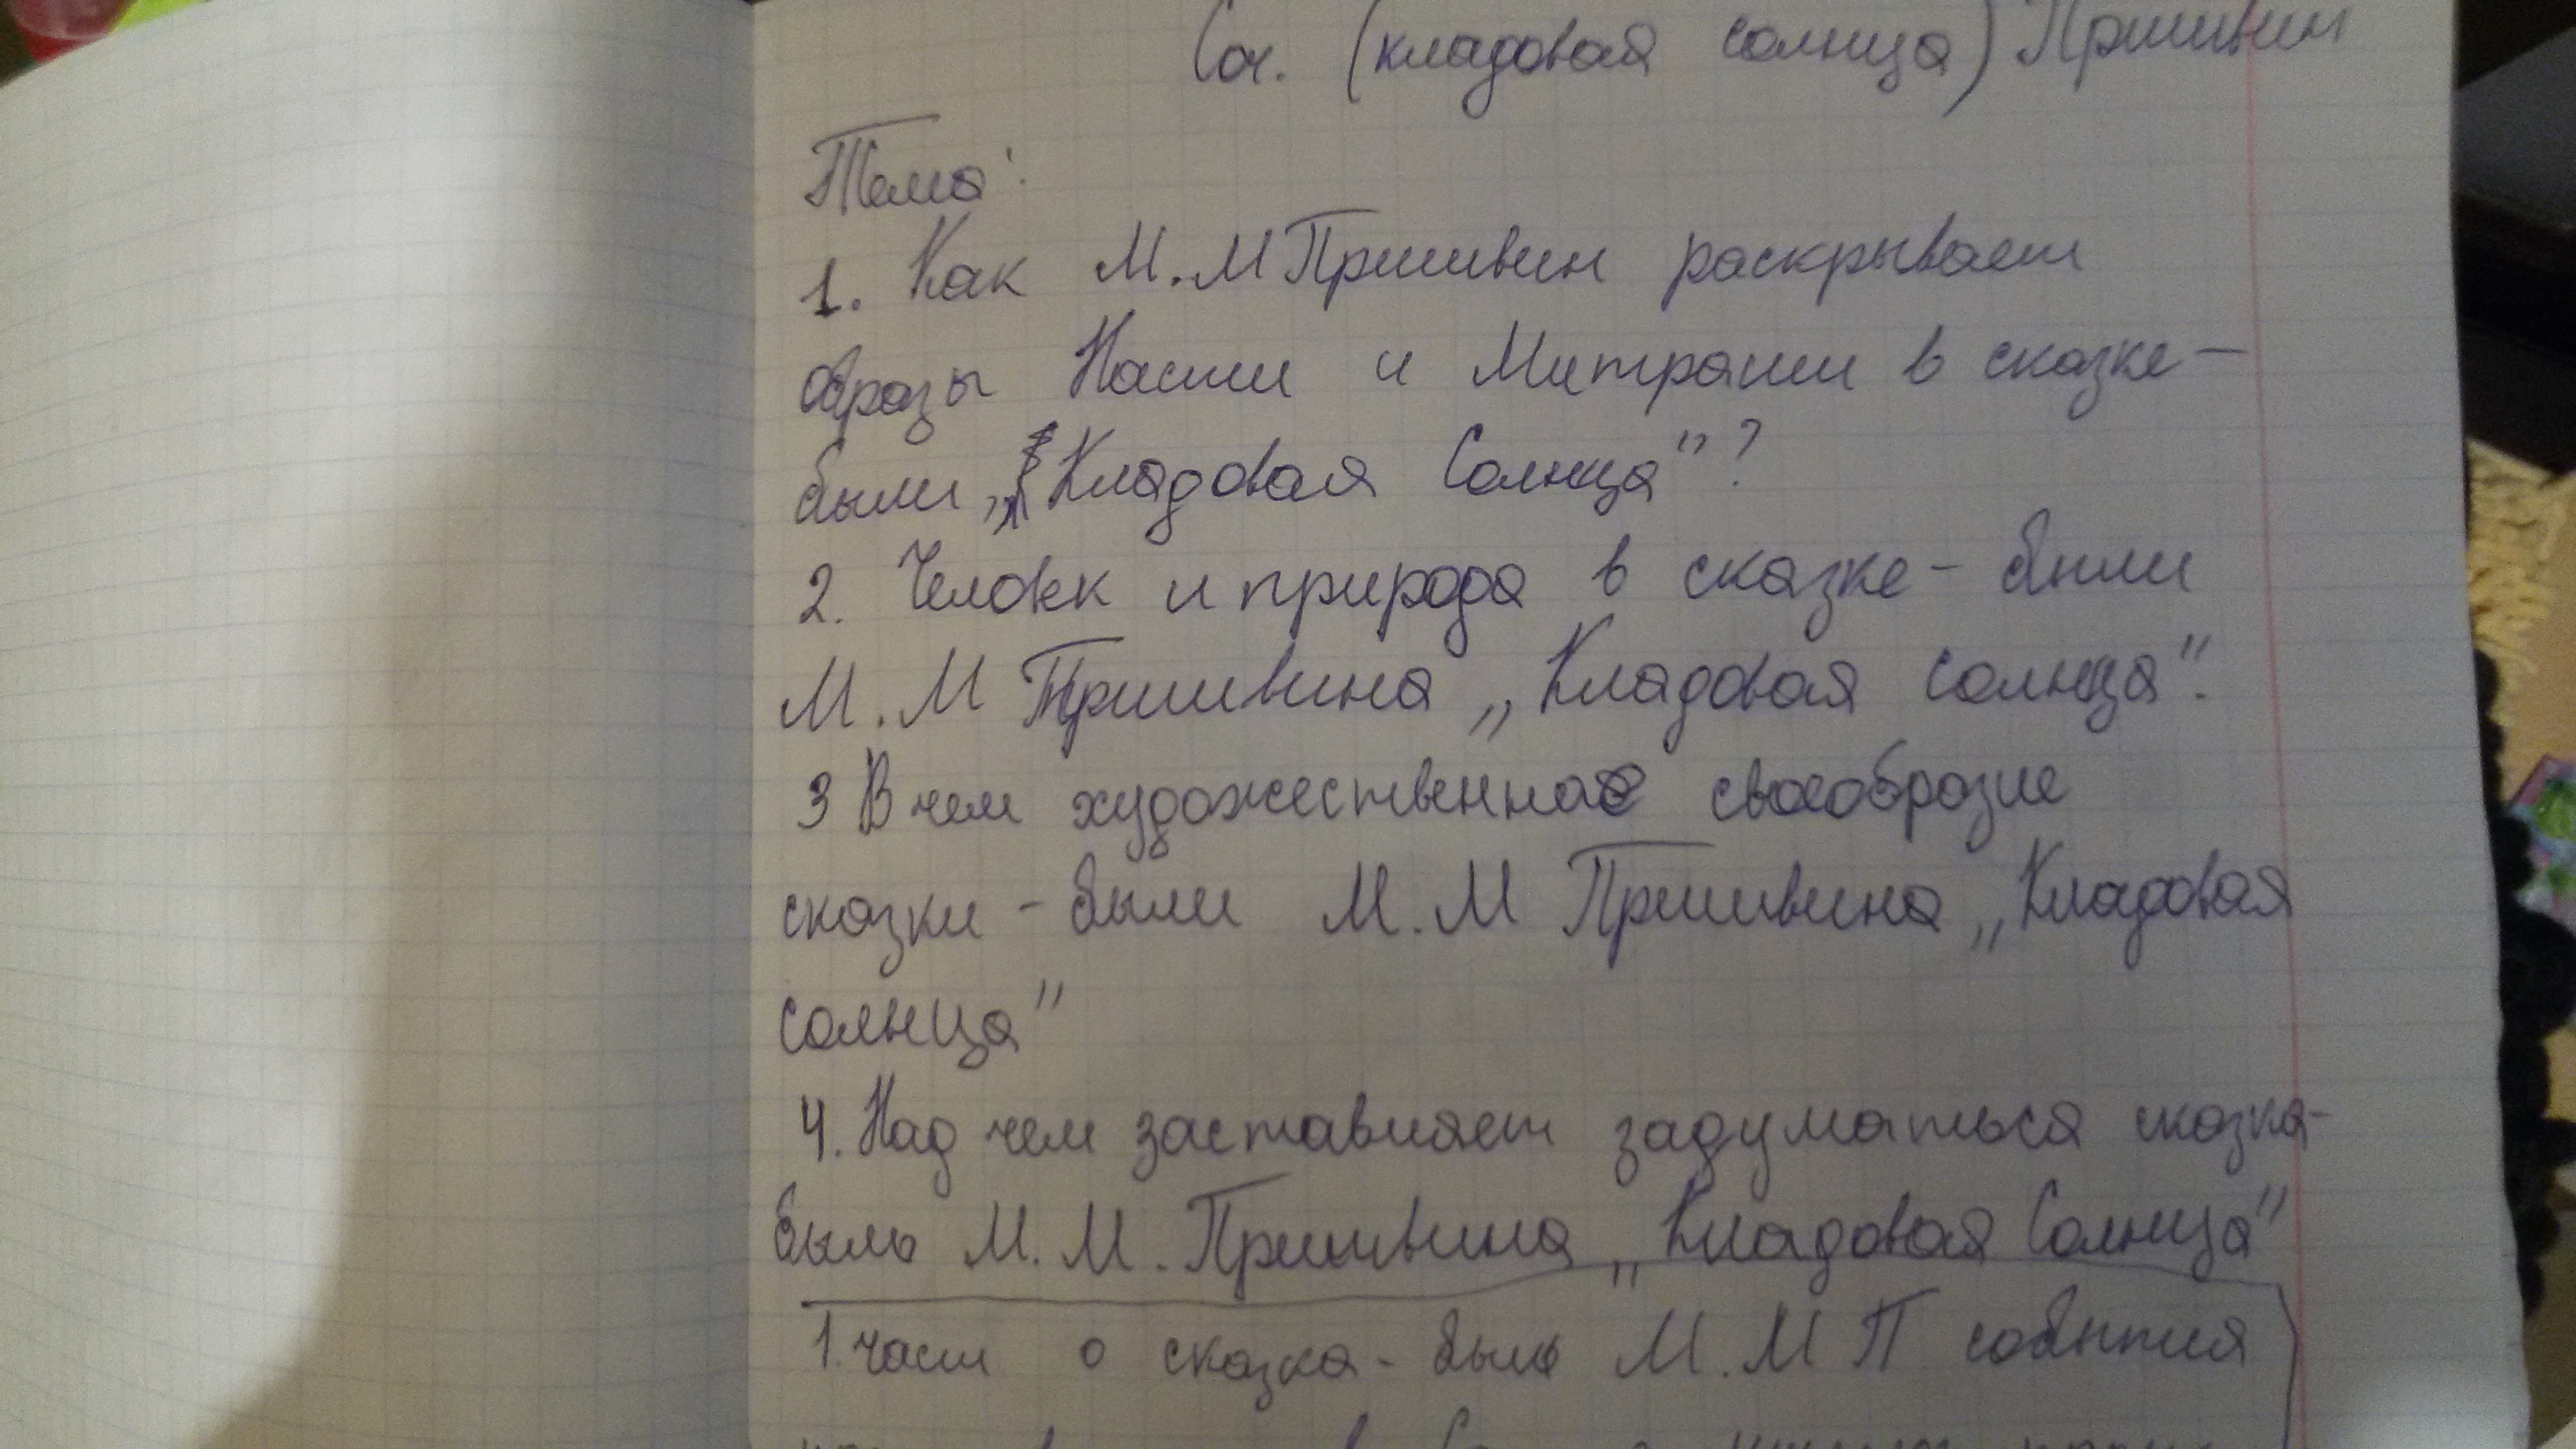 Соч. (кладовая солнца) Пришвин
Тема:
1. Как М.М Пришвин раскрывает
образы Насти и Митраши в сказке-
были „Кладовая Солнца"?
2. Человек и природа в сказке - были
М.М Пришвина „Кладовая солнца".
3 В чем художественное своеобразие
сказки - были М.М Пришвина „Кладовая
солнца"
4. Над чем заставляет задуматься сказка-
быль М.М. Пришвина „Кладовая Солнца"
1. часть о сказка - быль М.М П события